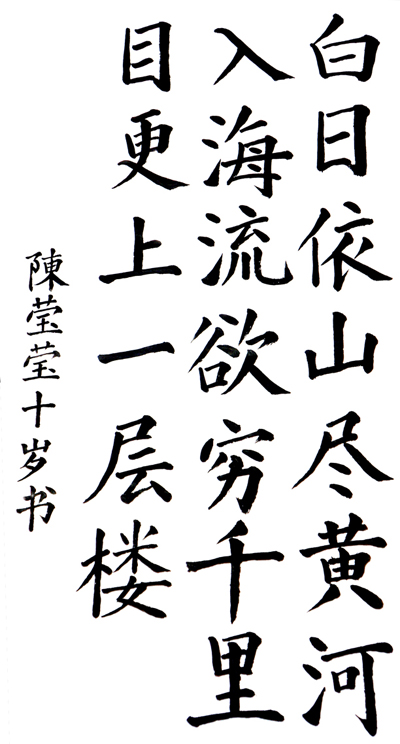 白日依山尽黄河
入海流欲穷千里
目更上一层楼
陳莹莹十岁书